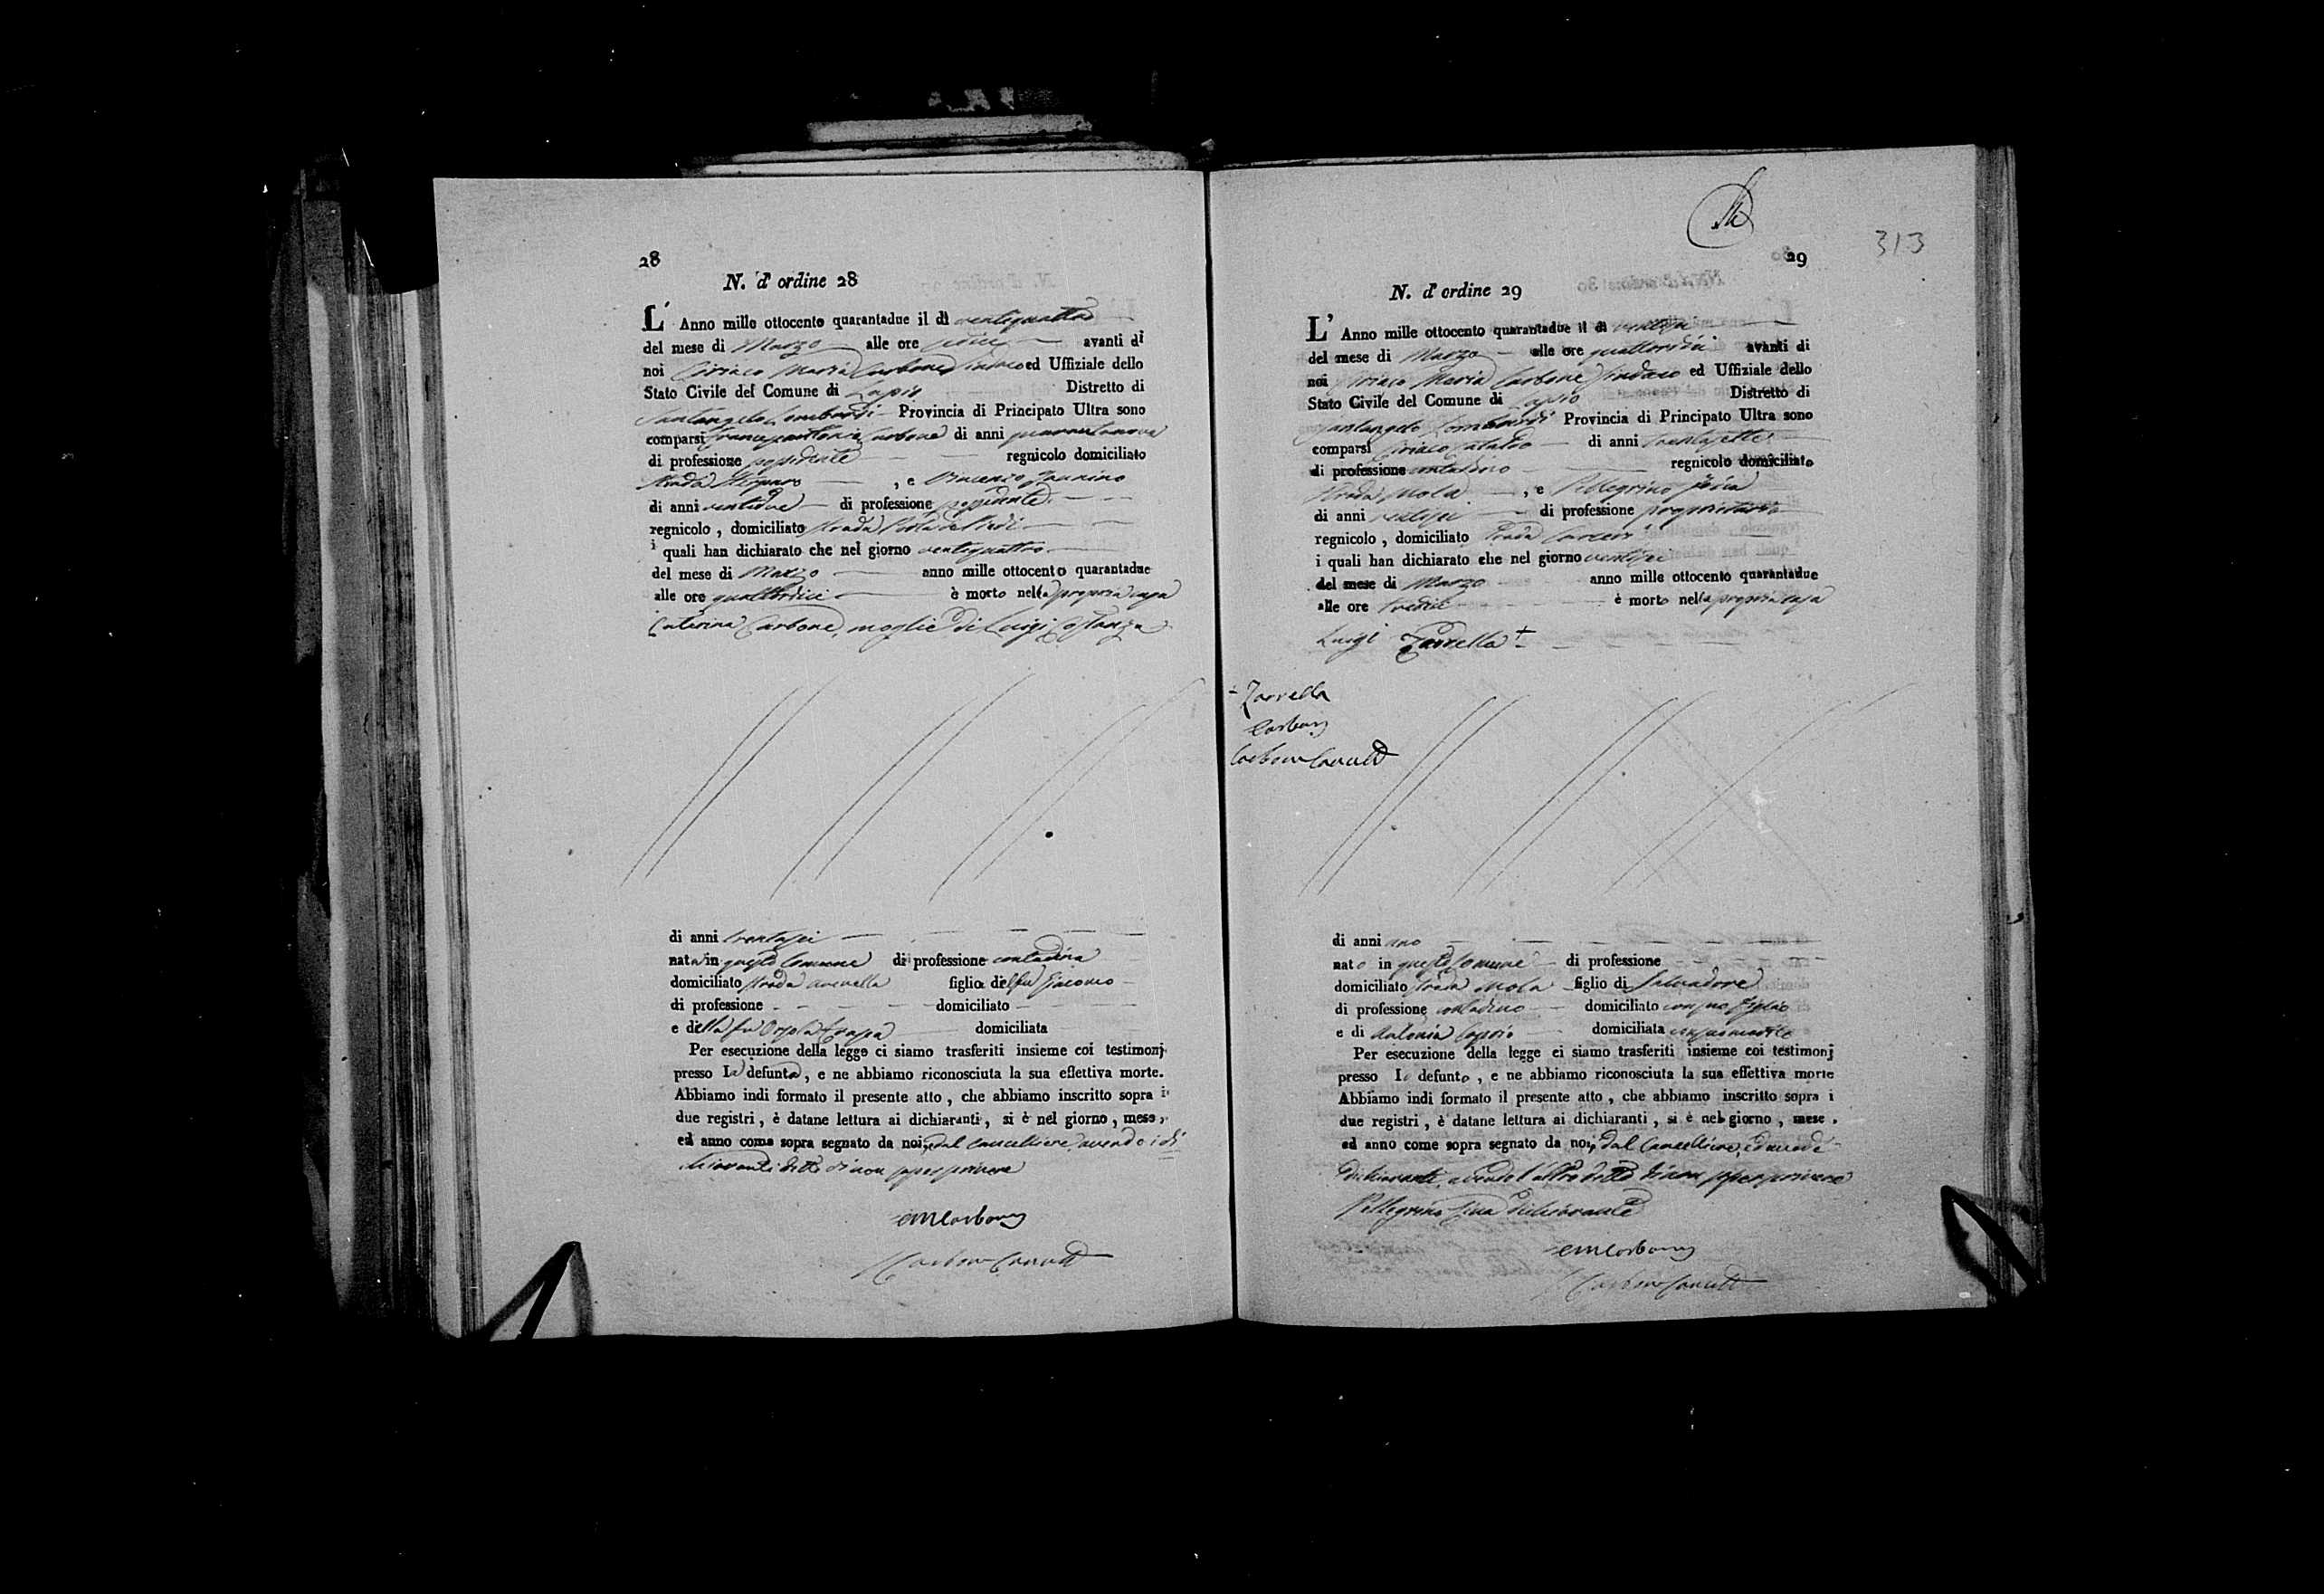 28
N. d' ordine 28
L' Anno mille ottocento quarantadue il dì ventiquattro
del mese di Marzo alle ore avanti di
noi Ciriaco Maria Carbone Sindaco ed Uffiziale dello
Stato Civile del Comune di Lapio Distretto di
Santangelo Lombardi Provincia di Principato Ultra sono
comparsi Francescantonio Carbone di anni quarantanove
di professione possidente regnicolo domiciliato
strada , e Vincenzo Iannino
di anni ventidue di professione possidente
regnicolo , domiciliato strada
i quali han dichiarato che nel giorno ventiquattro
del mese di Marzo anno mille ottocento quarantadue
alle ore quattordici è morto nella propria casa
Caterina Carbone, moglie di Luigi Costanza
di anni trentasei
nata in questo Comune di professione contadina
domiciliato strada figlia del fu Giacomo
di professione domiciliato
e della fu Orsola domiciliata
Per esecuzione della legge ci siamo trasferiti insieme coi testimonj
presso La defunta, e ne abbiamo riconosciuta la sua effettiva morte.
Abbiamo indi formato il presente atto , che abbiamo inscritto sopra i
due registri , è datane lettura ai dichiaranti, si è nel giorno , mese ,
ed anno come sopra segnato da noi, e dal Cancelliere avendo i di
chiaranti detto di non saper scrivere
CMCarbone
Carbone Cancell
29
313
N. d' ordine 29
L' Anno mille ottocento quarantadue il dì ventisei
del mese di Marzo alle ore quattordici avanti di
noi Ciriaco Maria Carbone Sindaco ed Uffiziale dello
Stato Civile del Comune di Lapio Distretto di
Santangelo Lombardi Provincia di Principato Ultra sono
comparsi Ciriaco Cataldo di anni trentasette
di professione contadino regnicolo domiciliato
strada Mola , e Pellegrino
di anni ventisei di professione proprietario
regnicolo , domiciliato strada Carceri
i quali han dichiarato che nel giorno ventisei
del mese di Marzo anno mille ottocento quarantadue
alle ore tredici è morto nella propria casa
Luigi Zarrella +
+ Zarrella
Carbone
Carbone Cancell
di anni uno
nato in questo Comune di professione
domiciliato strada Mola figlio di Salvadore
di professione contadino domiciliato con suo figlio
e di Antonia domiciliata con suo marito
Per esecuzione della legge ci siamo trasferiti insieme coi testimonj
presso Lo defunto , e ne abbiamo riconosciuta la sua effettiva morte
Abbiamo indi formato il presente atto , che abbiamo inscritto sopra i
due registri , è datane lettura ai dichiaranti , si è nel giorno , mese ,
ed anno come sopra segnato da noi, dal Cancelliere, ed uno de
dichiaranti, avendo l'altro detto di non saper scrivere
Pellegrino dichiarante
CMCarbone
Carbone Cancell